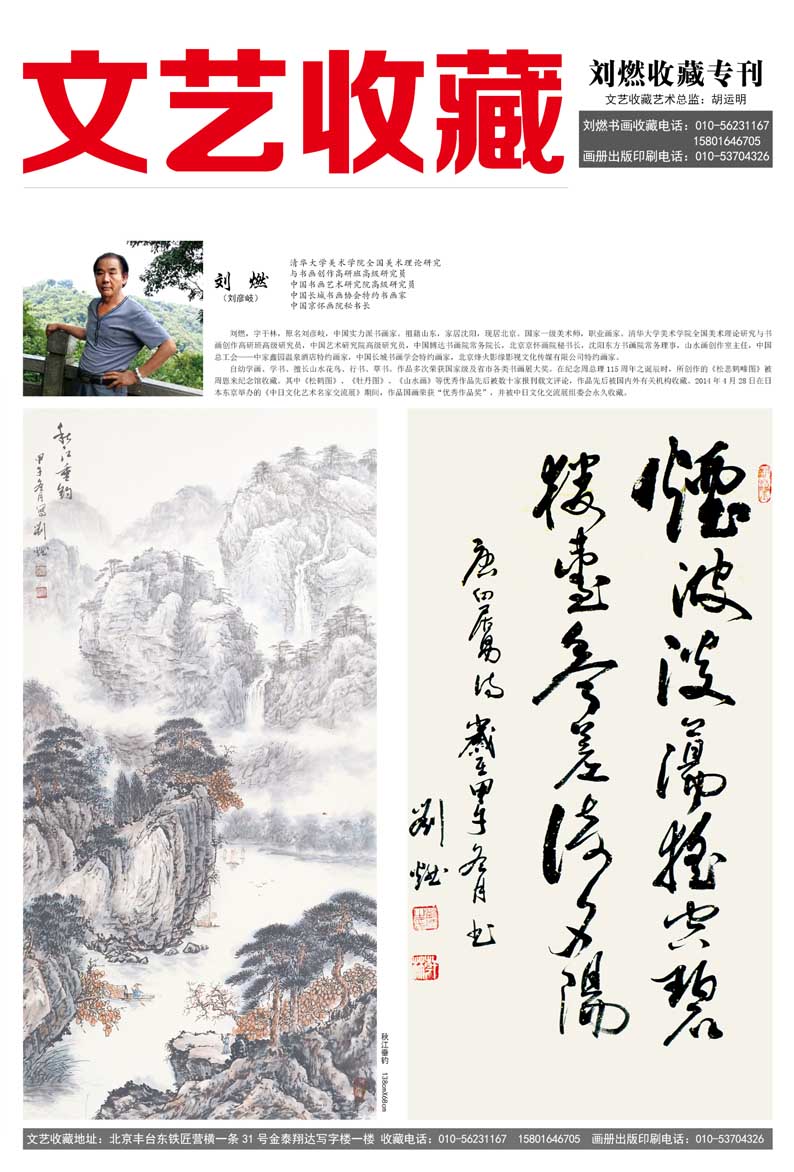 文艺收藏
刘燃收藏专刊
文艺收藏艺术总监：胡运明
刘燃书画收藏电话：010-56231167
15801646705
画册出版印刷电话：010-53704326
刘 燃
（刘彦岐）
清华大学美术学院全国美术理论研究
与书画创作高研班高级研究员
中国书画艺术研究院高级研究员
中国长城书画协会特约书画家
中国京怀画院秘书长
刘燃，字于林，原名刘彦岐，中国实力派书画家。祖籍山东，家居沈阳，现居北京。国家一级美术师，职业画家。清华大学美术学院全国美术理论研究与书
画创作高研班高级研究员，中国艺术研究院高级研究员，中国腾达书画院常务院长，北京京怀画院秘书长，沈阳东方书画院常务理事，山水画创作室主任，中国
总工会——中家鑫园温泉酒店特约画家，中国长城书画学会特约画家，北京烽火影缘影视文化传媒有限公司特约画家。
自幼学画、学书、擅长山水花鸟、行书、草书。作品多次荣获国家级及省市各类书画展大奖。在纪念周总理 115 周年之诞辰时，所创作的《松恋鹤峰图》被
周恩来纪念馆收藏。其中《松鹤图》、《牡丹图》、《山水画》等优秀作品先后被数十家报刊载文评论，作品先后被国内外有关机构收藏。2014 年 4 月 28 日在日
本东京举办的《中日文化艺术名家交流展》期间，作品国画荣获“优秀作品奖”，并被中日文化交流展组委会永久收藏。
秋江垂钓
甲午冬月写刘燃
秋江垂钓 138cmX68cm
煙波淡蕩摇空碧
楼臺参差倚夕陽
唐白居易詩 歲在甲午冬月书
劉燃
文艺收藏地址：北京丰台东铁匠营横一条 31 号金泰翔达写字楼一楼 收藏电话：010-56231167 15801646705 画册出版印刷电话：010-53704326